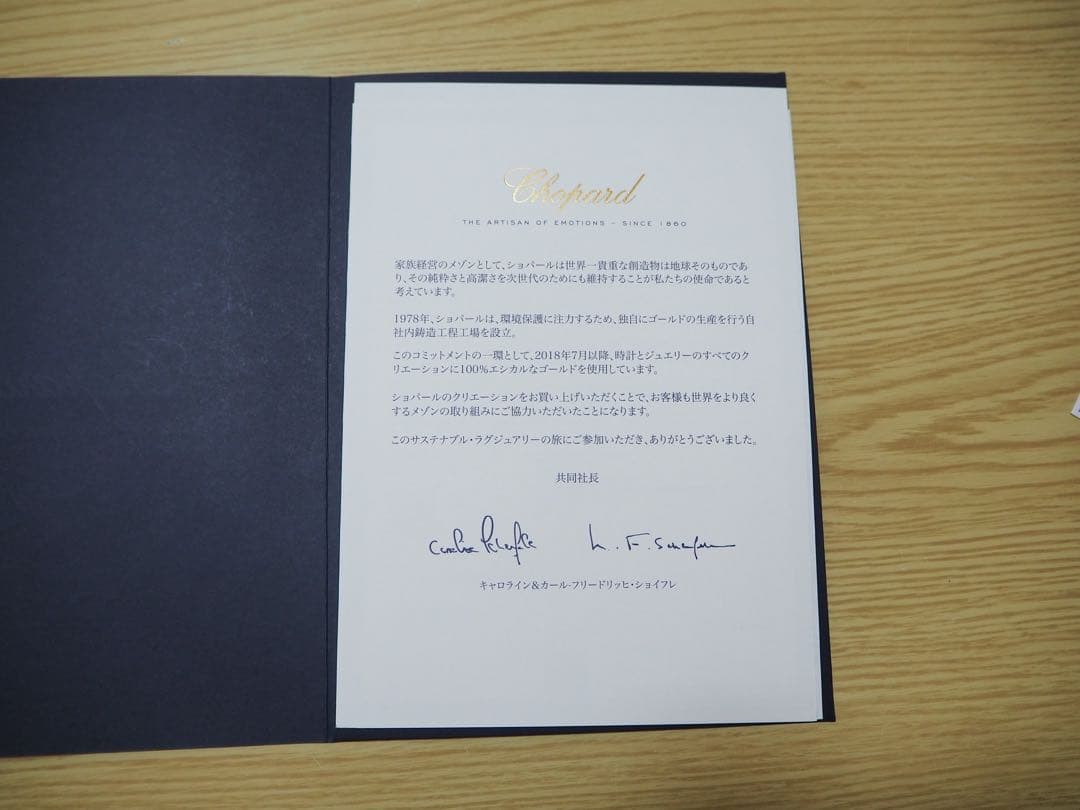 Chopard
THE ARTISAN OF EMOTIONS – SINCE 1860
家族経営のメゾンとして、ショパールは世界一貴重な創造物は地球そのものであ
り、その純粋さと高潔さを次世代のためにも維持することが私たちの使命であると
考えています。
1978年、ショパールは、環境保護に注力するため、独自にゴールドの生産を行う自
社内鋳造工程工場を設立。
このコミットメントの一環として、2018年7月以降、時計とジュエリーのすべてのク
リエーションに100%エシカルなゴールドを使用しています。
ショパールのクリエーションをお買い上げいただくことで、お客様も世界をより良く
するメゾンの取り組みにご協力いただいたことになります。
このサステナブル・ラグジュアリーの旅にご参加いただき、ありがとうございました。
共同社長
キャロライン&カール-フリードリッヒ・ショイフレ